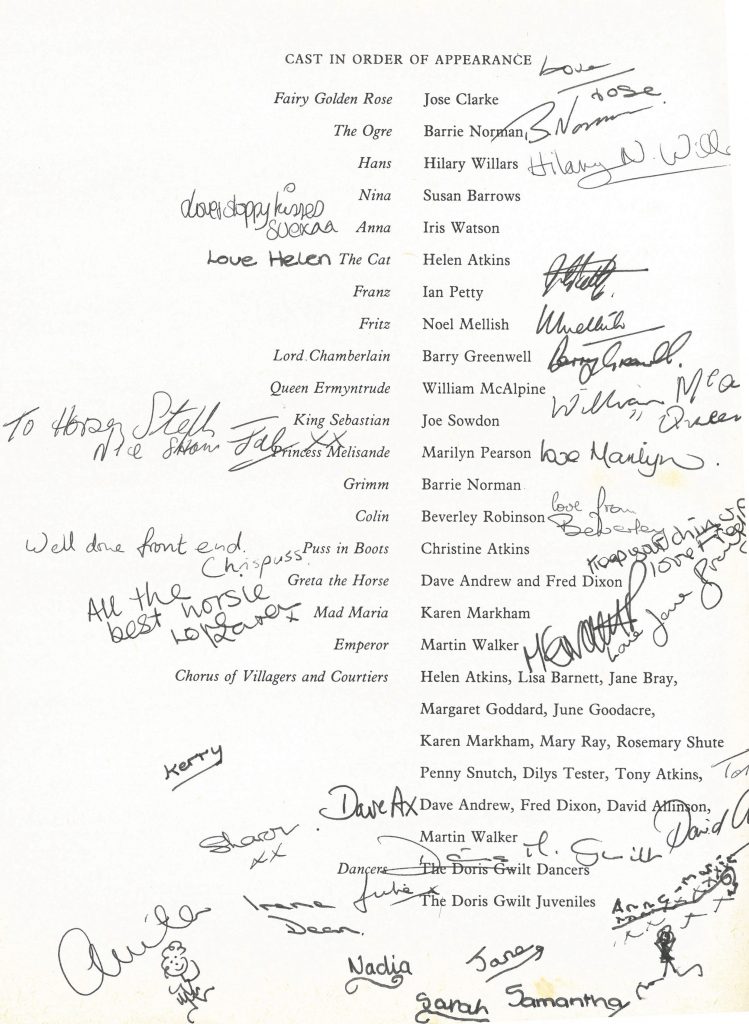 CAST IN ORDER OF APPEARANCE Love
Rose
Fairy Golden Rose Jose Clarke
The Ogre Barrie Norman B Norman
Hans Hilary Willars Hilary N. Will
Nina Susan Barrows
sloppy kisses
Anna Iris Watson
Love Helen The Cat Helen Atkins
Franz Ian Petty
Fritz Noel Mellish
Lord Chamberlain Barry Greenwell
Queen Ermyntrude William McAlpine William McA
Queen
King Sebastian Joe Sowdon
To Horse
Nice Show XX
Princess Melisande Marilyn Pearson love Marilyn.
Grimm Barrie Norman
Colin Beverley Robinson love from
Beverley
Well done front end. Puss in Boots Christine Atkins Keep your chin up
Chrispuss love
Greta the Horse Dave Andrew and Fred Dixon
All the
best horsie
Mad Maria Karen Markham
Emperor Martin Walker love Jane Bray
Chorus of Villagers and Courtiers Helen Atkins, Lisa Barnett, Jane Bray,
Margaret Goddard, June Goodacre,
Karen Markham, Mary Ray, Rosemary Shute
Kerry
Penny Snutch, Dilys Tester, Tony Atkins,
Dave Ax Dave Andrew, Fred Dixon, David Allinson,
Sharon
xx
Martin Walker David A
Doris M. Gwilt
Dancers The Doris Gwilt Dancers
Julie x The Doris Gwilt Juveniles Anne-Marie
Irene
Dean
Nadia Jane
Sarah Samantha